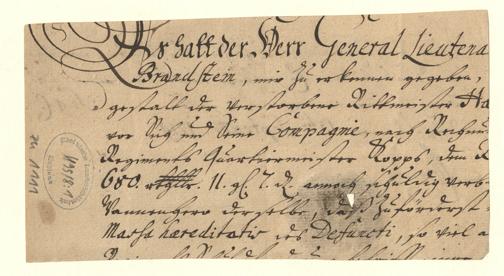 Es hatt der Herr General Lieutena
Brandstein, mir zu erkennen gegeben,
gestalt der verstorbene Rittmeister Ha
vor Sich und Seine Compagnie, nach Rechnu
Regiments Quartiermeister Kopps, dem R
680. rthllr. 11. gl. 7. d. annoch schuldig verb
Wannenhero derselbe, daß zuförderst
Massa haereditatis des Defuncti, so viel a